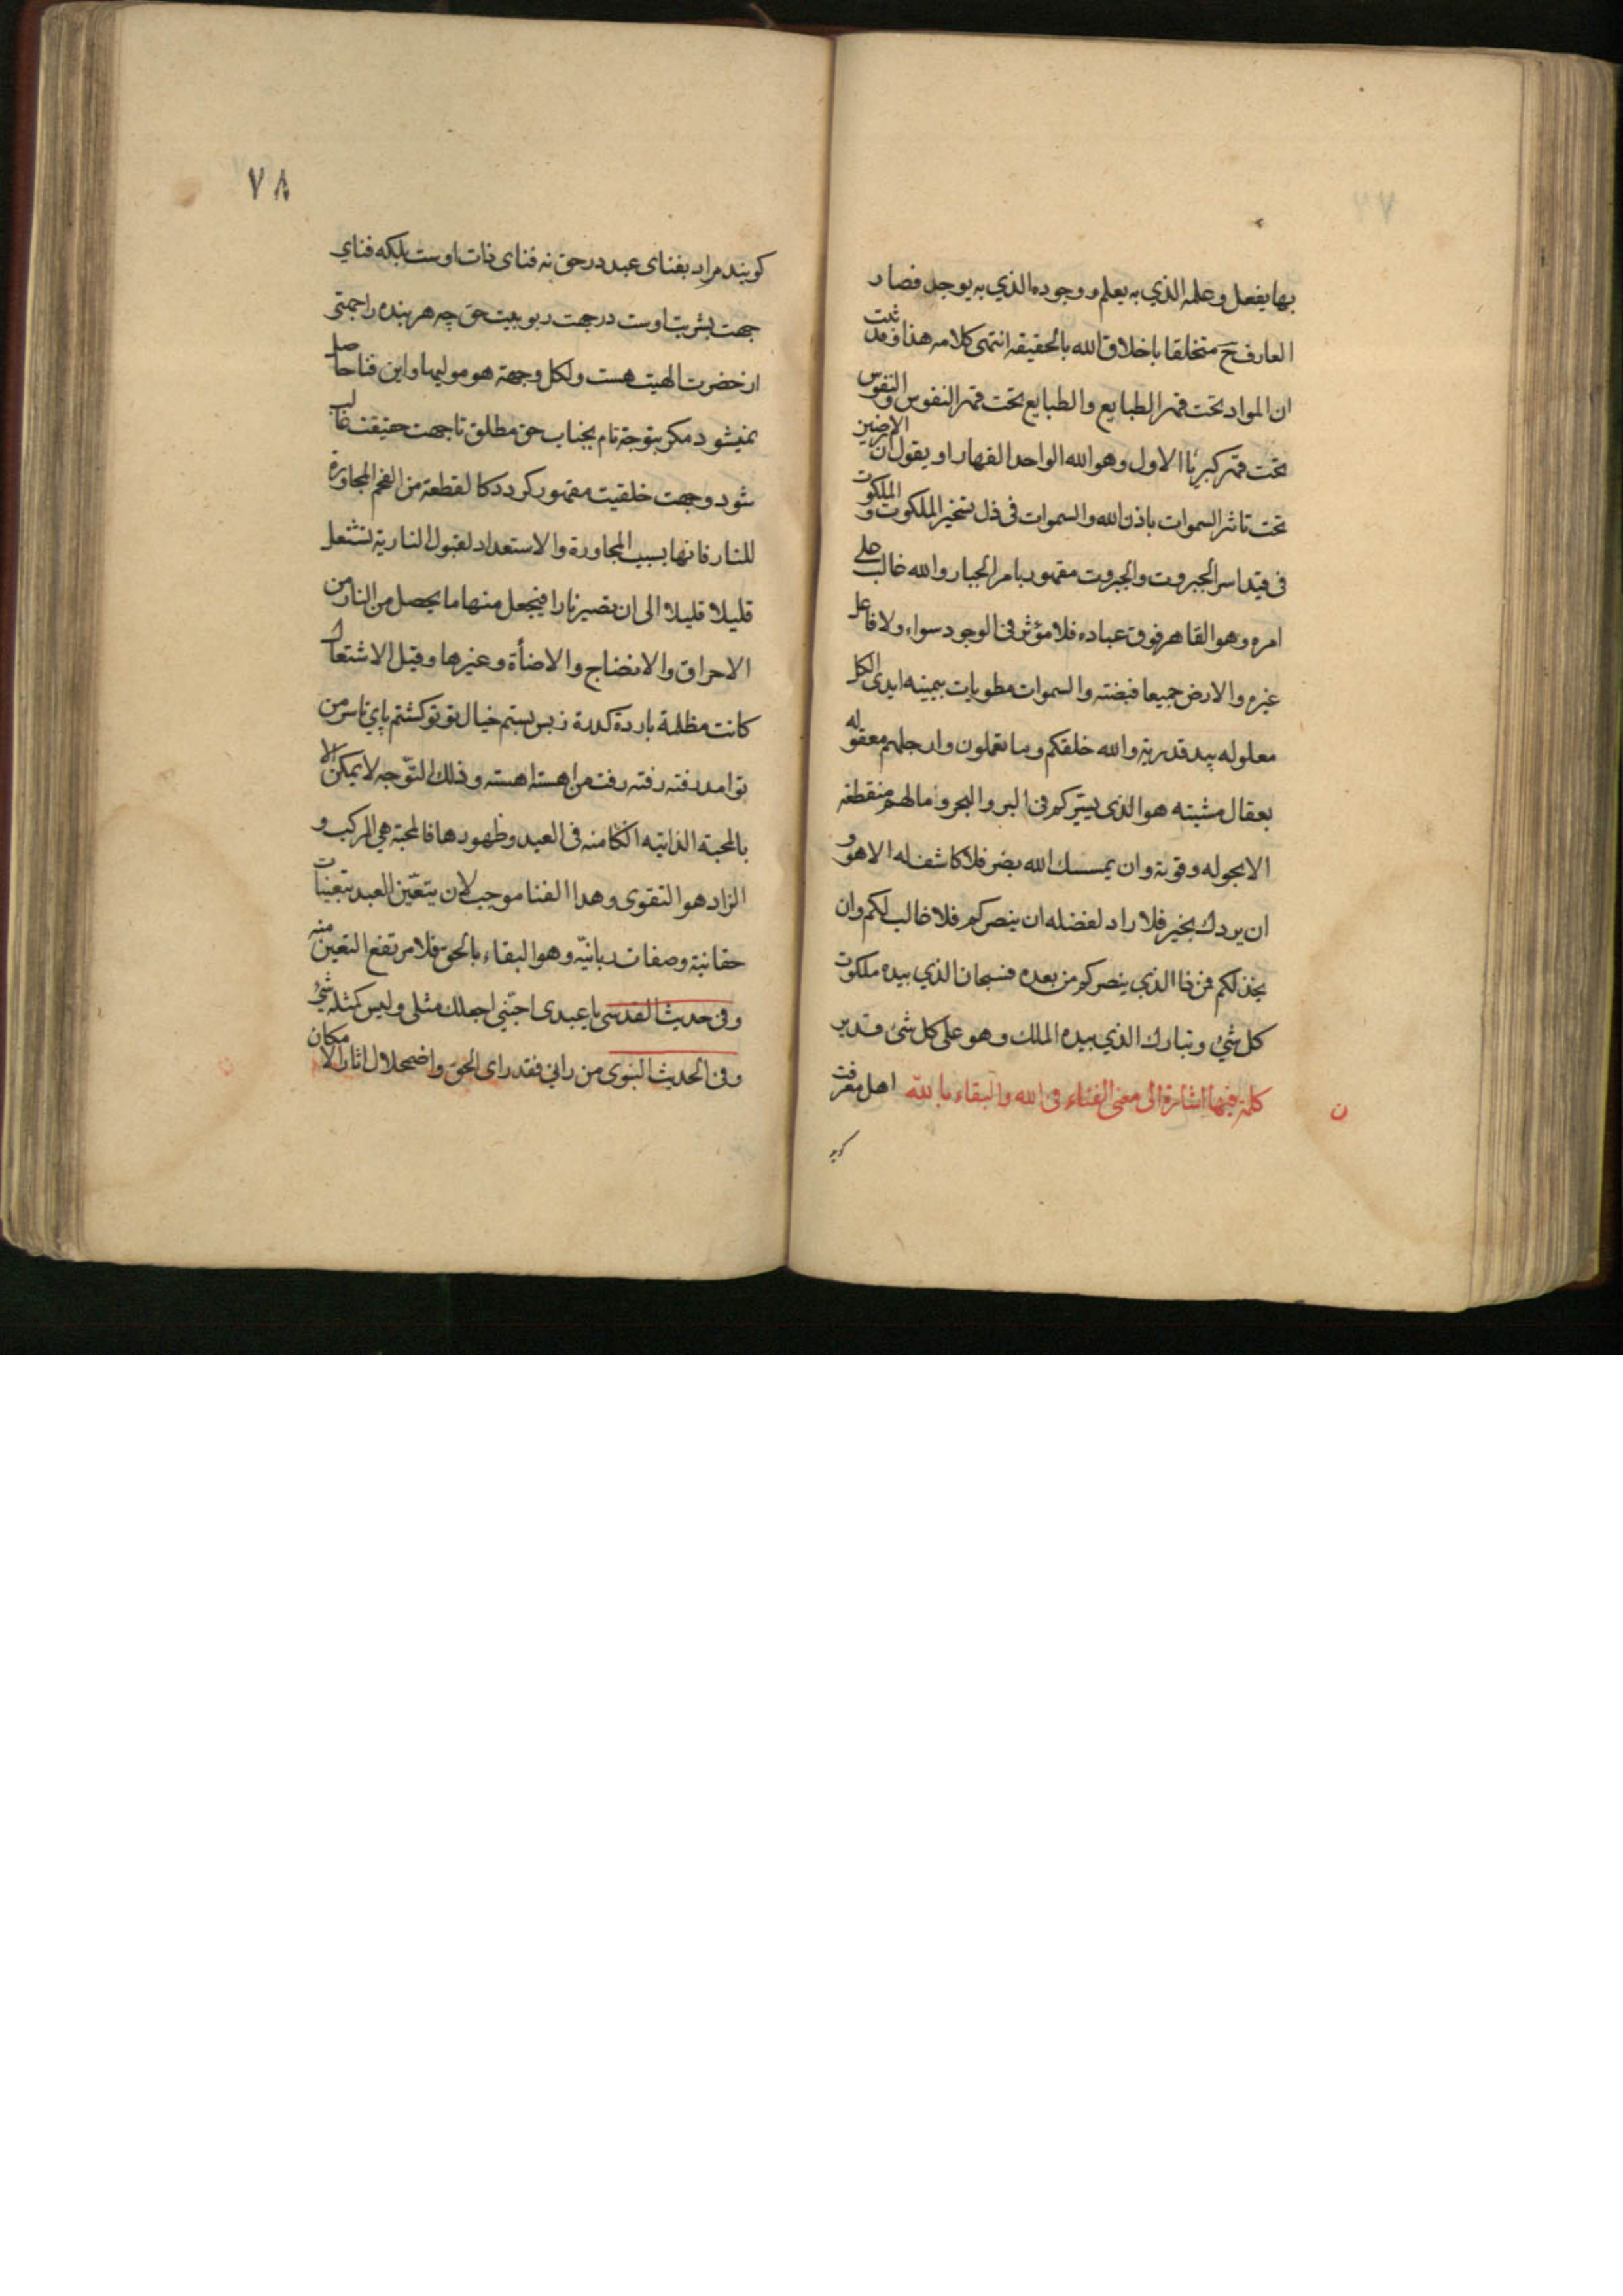 بها يفعل وعلمه الذي به يعلم ووجوده الذي به يوجد فصار
العارف ح متخلقا باخلاق الله بالحقيقه انتهى كلامه هذا وقد ثبت
ان المواد تحت قهر الطبايع والطبايع تحت قهر النفوس والنفوس
تحت قهر كبريا الاول وهو الله الواحد القهار او يقول ان الارضين
تحت تاثر السموات باذن الله والسموات فى ذل تسخير الملكوت والملكوت
فى قيد اسر الجبروت والجبروت مقهور بامر الجبار والله غالب على
امره وهو القاهر فوق عباده فلا مؤثر فى الوجود سواه ولا فاعل
غيره والارض جميعا قبضته والسموات مطويات بيمينه ايدى الكل
معلوله بيد قدرته والله خلقكم وما تعملون وارجلهم معقوله
بعقال مشيته هو الذى يسيركم فى البر والبحر وما لهم منقطعة
الا بحوله وقوته وان يمسسك الله بضر فلا كاشف له الا هو و
ان يردك بخير فلا راد لفضله ان ينصركم فلا غالب لكم وان
يخذلكم فمن ذا الذي ينصركم من بعده فسبحان الذي بيده ملكوت
كل شئ وتبارك الذي بيده الملك وهو على كل شئ قدير
كلمة فيها اشارة الى معنى الفناء فى الله والبقاء بالله اهل معرفت
ن
كويند
٧٨
كويند مراد بفناى عبد در حق نه فناى ذات اوست بلكه فناي
جهت بشريت اوست در جهت ربوبيت حق چه هر بنده را جهتى
از حضرت الهيت هست ولكل وجهة هو موليها واين فنا حاصل
نميشود مكر بتوجه تام بجناب حق مطلق تا جهت حقيقت غالب
شود وجهت خلقيت مقهور كردد كالقطعة من الفحم المجاورة
للنار فانها بسبب المجاورة والاستعداد لقبول النارية تشتعل
قليلا قليلا الى ان تصير نارا فيحصل منها ما يحصل من النار من
الاحراق والانضاج والاضأة وغيرها وقبل الاشتعال
كانت مظلمة باردة كدرة ز بس بستم خيال تو تو كشتم پاي تا سر من
تو امد رفته رفته رفت من اهسته اهسته وذلك التوّجه لا يمكن الا
بالمحبة الذاتيه الكامنه فى العبد وظهورها فالمحبة هي المركب و
الزاد هو التقوى وهذا الفنا موجب لان يتعّين العبد بتعينات
حقانية وصفات ربانيّه وهو البقاء بالحق فلا مرتفع التعين منه
وفى حديث القدسى يا عبدى اجبنى اجعلك مثلى وليس كمثله شئ
وفى الحديث النبوى من رانى فقد راى الحق واضمحلال اثار الامكان